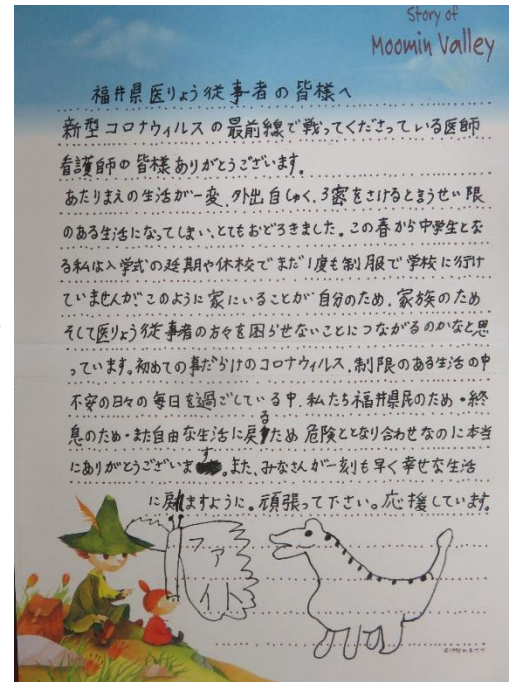 Story of
Moomin Valley
福井県医りょう従事者の皆様へ
新型コロナウィルスの最前線で戦ってくださっている医師
看護師の皆様ありがとうございます。
あたりまえの生活が一変、外出自しゅく、3密をさけると言うせい限
のある生活になってしまい、とてもおどろきました。この春から中学生とな
る私は入学式の延期や休校でまだ1度も制服で学校に行け
ていませんが、このように家にいることが自分のため、家族のため
そして医りょう従事者の方々を困らせないことにつながるのかなと思
っています。初めての事だらけのコロナウィルス、制限のある生活の中
不安の日々の毎日を過ごしている中、私たち福井県民のため・終
息のため・また自由な生活に戻るため危険ととなり合わせなのに本当
にありがとうございます。また、みなさんが一刻も早く幸せな生活
に戻れますように。頑張って下さい。応援しています。
ファイト